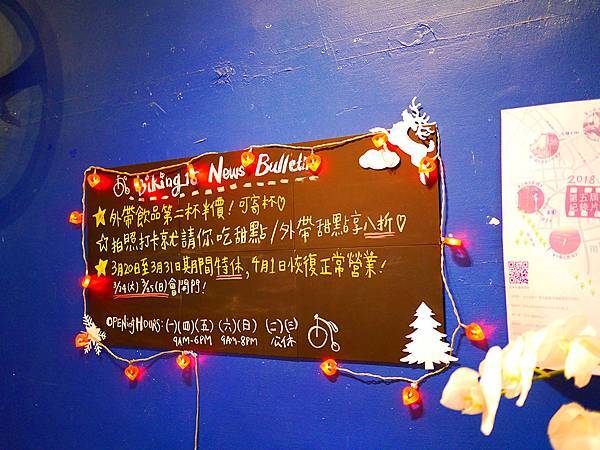 Biking it News Bulletin
外帶飲品第二杯半價！可寄杯♡
拍照打卡就請你吃甜點/外帶甜點享八折♡
3月20日至3月31日期間特休，4月1日恢復正常營業！
3/24(六) 3/25(日)會開門！
OPENing HOURS: (一)(四)(五) (六)(日) (二)(三)
9AM-6PM 9AM-8PM 公休
2018
第五屆
紀錄片